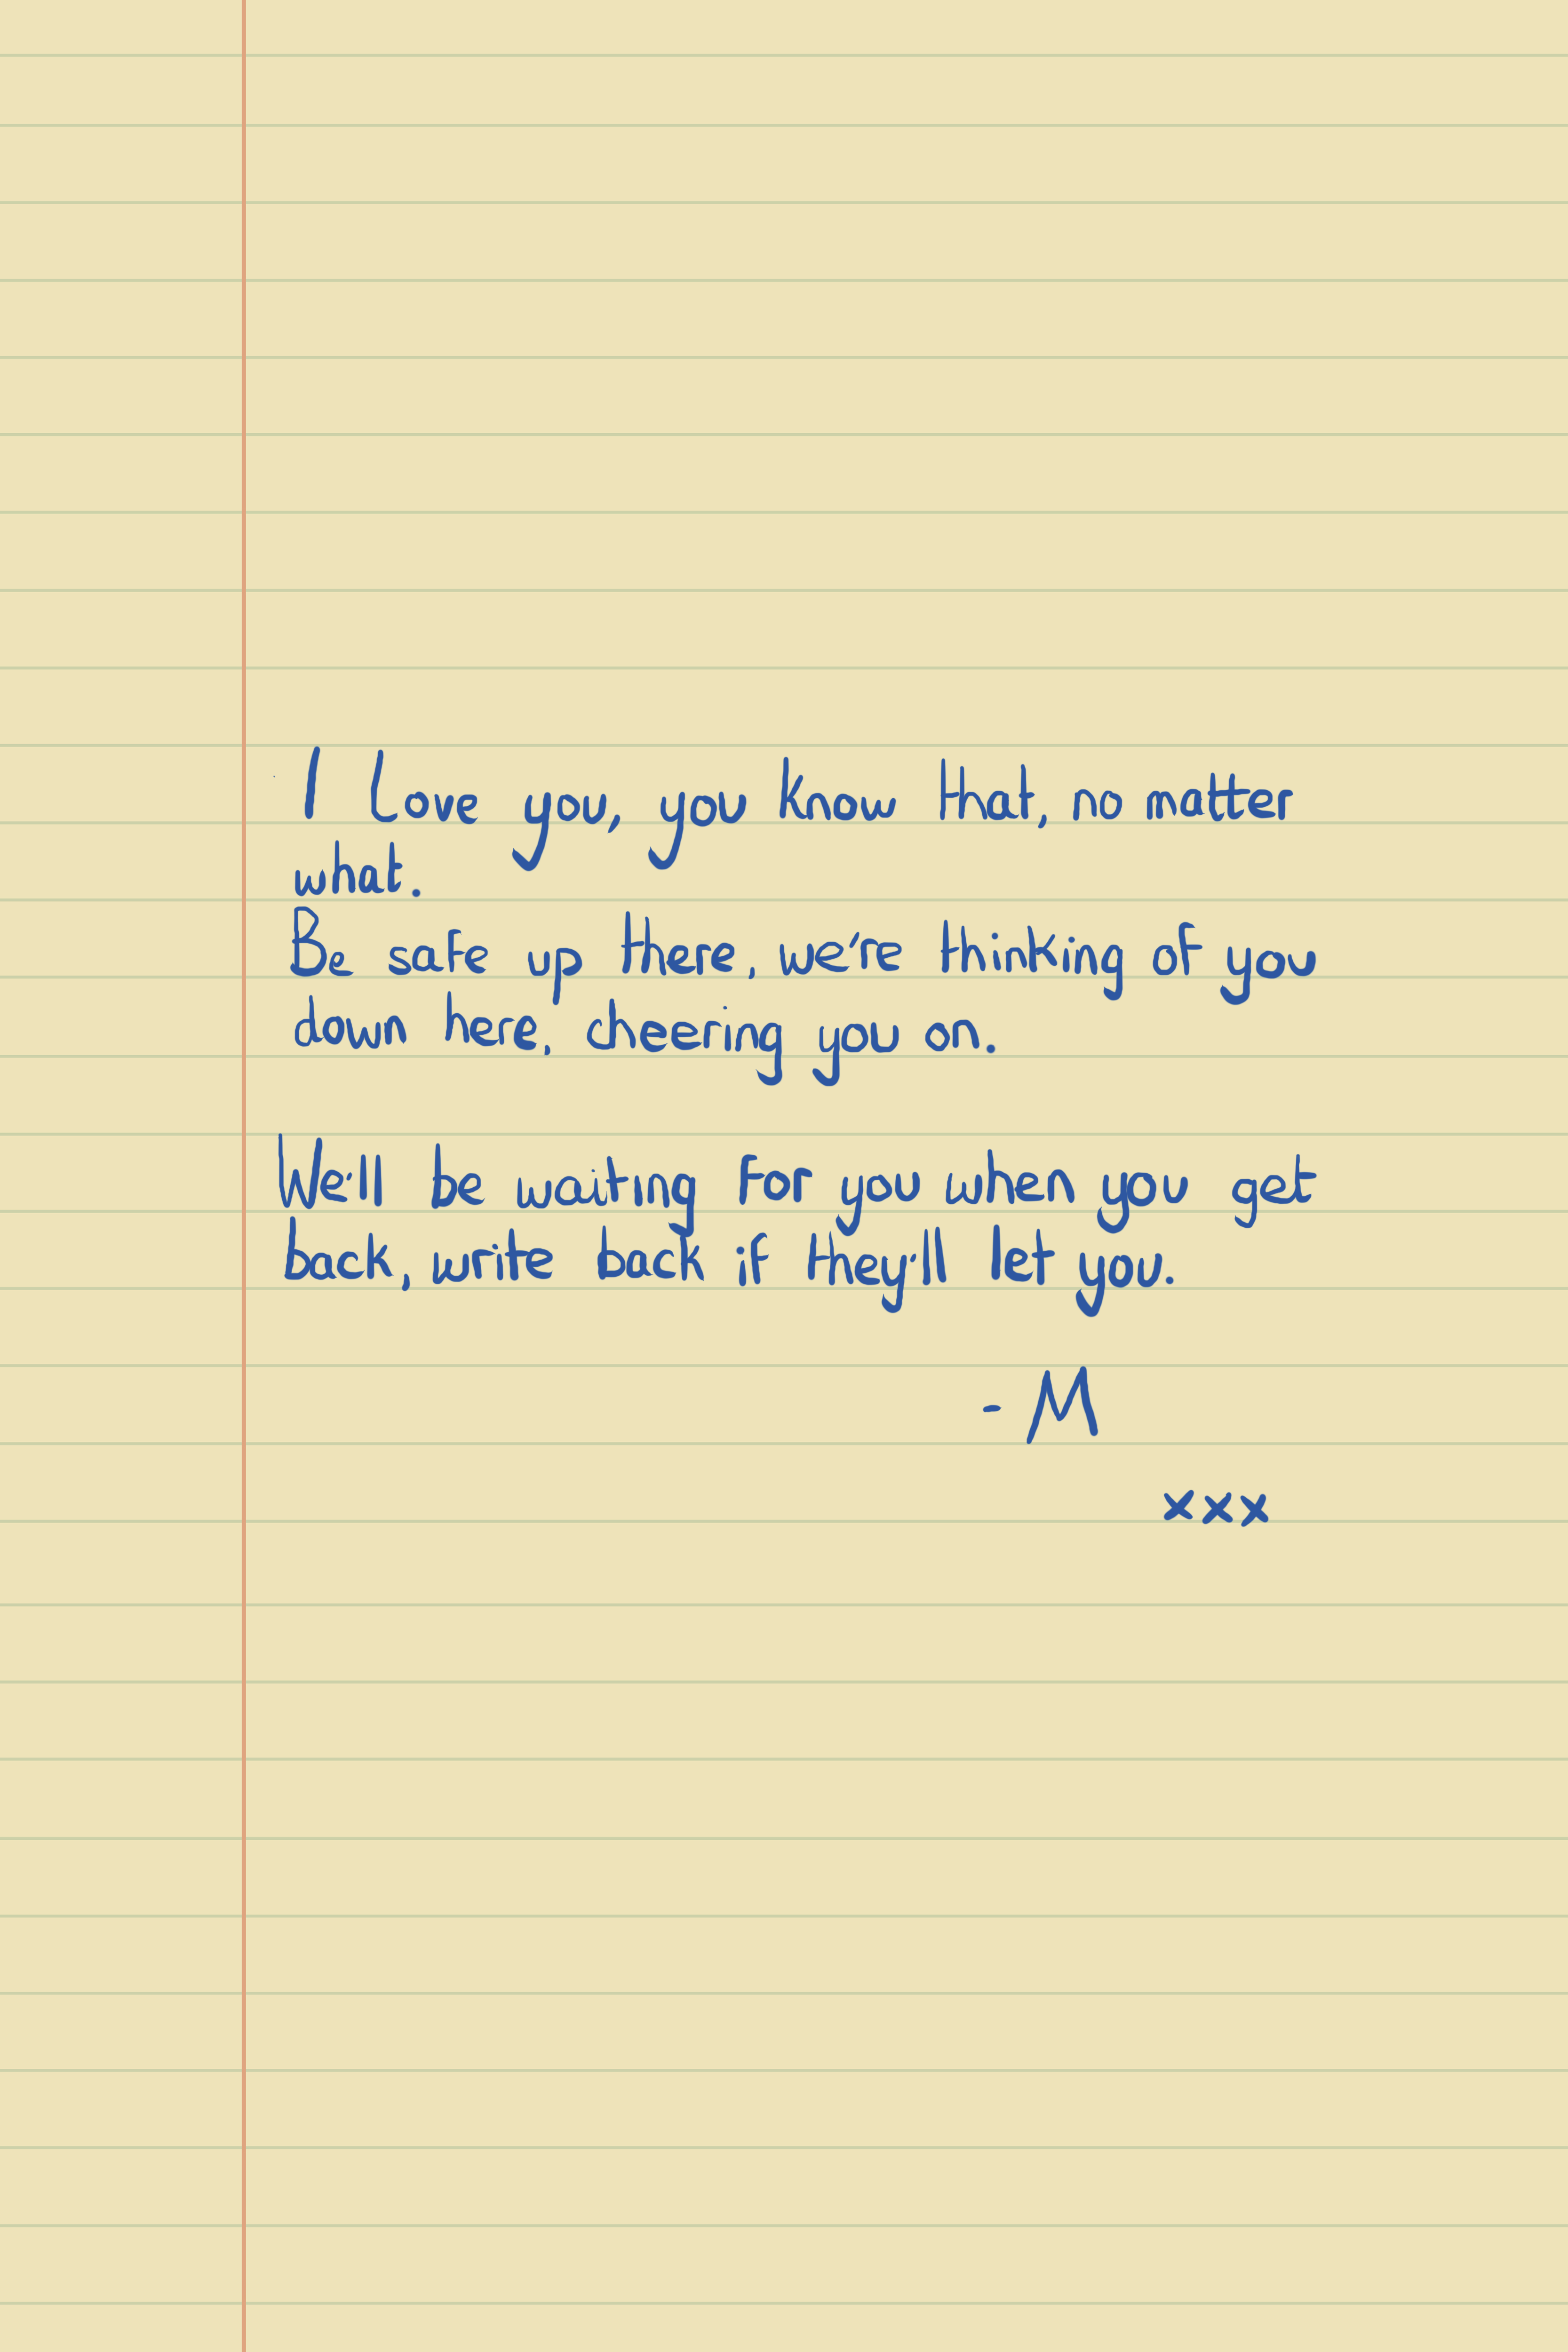 I Love you, you know that, no matter
what.
Be safe up there, we're thinking of you
down here, cheering you on.
We'll be waiting for you when you get
back, write back if they'll let you.
- M
xxx